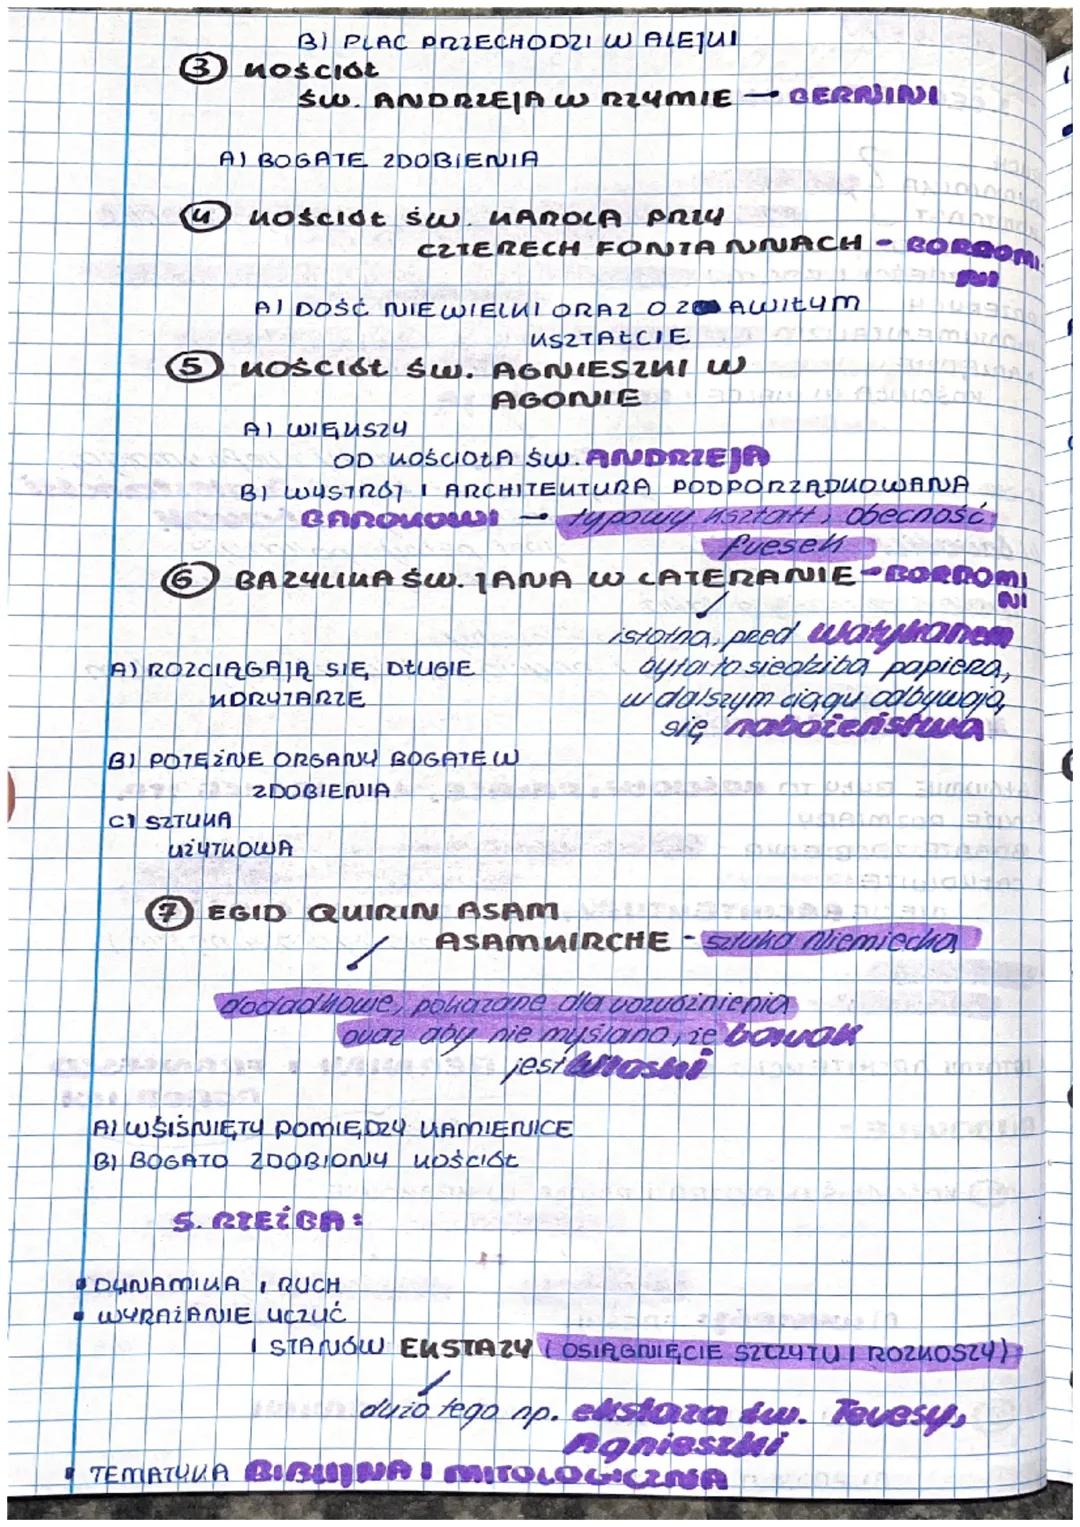 B) PLAC PRZECHODZI W ALEJKI
③ KOŚCIÓŁ
ŚW. ANDRZEJA W RZYMIE → BERNINI
A) BOGATE ZDOBIENIA
④ KOŚCIÓŁ ŚW. KAROLA PRZY
CZTERECH FONTANNACH - BORROMI-
NI
A) DOŚĆ NIEWIELKI ORAZ O ZAWIŁYM
KSZTAŁCIE
⑤ KOŚCIÓŁ ŚW. AGNIESZKI W
AGONIE
A) WIĘKSZY
OD KOŚCIOŁA ŚW. ANDRZEJA
B) WYSTRÓJ I ARCHITEKTURA PODPORZĄDKOWANA
BAROKOWI → typowy kształt, obecność
fresek
⑥ BAZYLIKA ŚW. JANA W LATERANIE - BORROMI
NI
istotna, przed Watykanem
była to siedziba papieża,
w dalszym ciągu odbywają
się nabożeństwa
A) ROZCIĄGAJĄ SIĘ DŁUGIE
KORYTARZE
B) POTĘŻNE ORGANY BOGATE W
ZDOBIENIA
C) SZTUKA
UŻYTKOWA
⑦ EGID QUIRIN ASAM
ASAMKIRCHE - sztuka Niemiecka
dodadkowe, pokazane dla rozróżnienia
oraz aby nie myślano, że barok
jest Włoski
A) WŚIŚNIĘTY POMIĘDZY KAMIENICE
B) BOGATO ZDOBIONY KOŚCIÓŁ
5. RZEŹBA:
▪ DYNAMIKA I RUCH
▪ WYRAŻANIE UCZUĆ
I STANÓW EKSTAZY (OSIĄGNIĘCIE SZCZYTU I ROZKOSZY)
dużo tego np. ekstaza św. Teresy,
Agnieszki
▪ TEMATYKA BIBLIJNA I MITOLOGICZNA